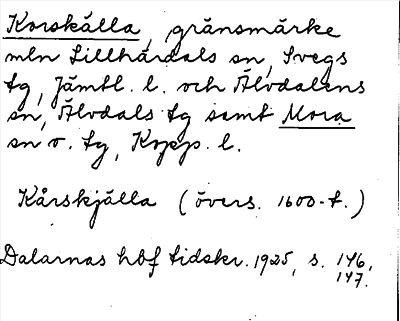 Korskälla, gränsmärke
mln Lillhärdals sn, Svegs
tg, Jämtl. l. och Älvdalens
sn, Älvdals tg samt Mora
sn o. tg, Kopp. l.
Kårskjälla (övers. 1600-t.)
Dalarnas hbf tidskr. 1925, s. 146,
147.